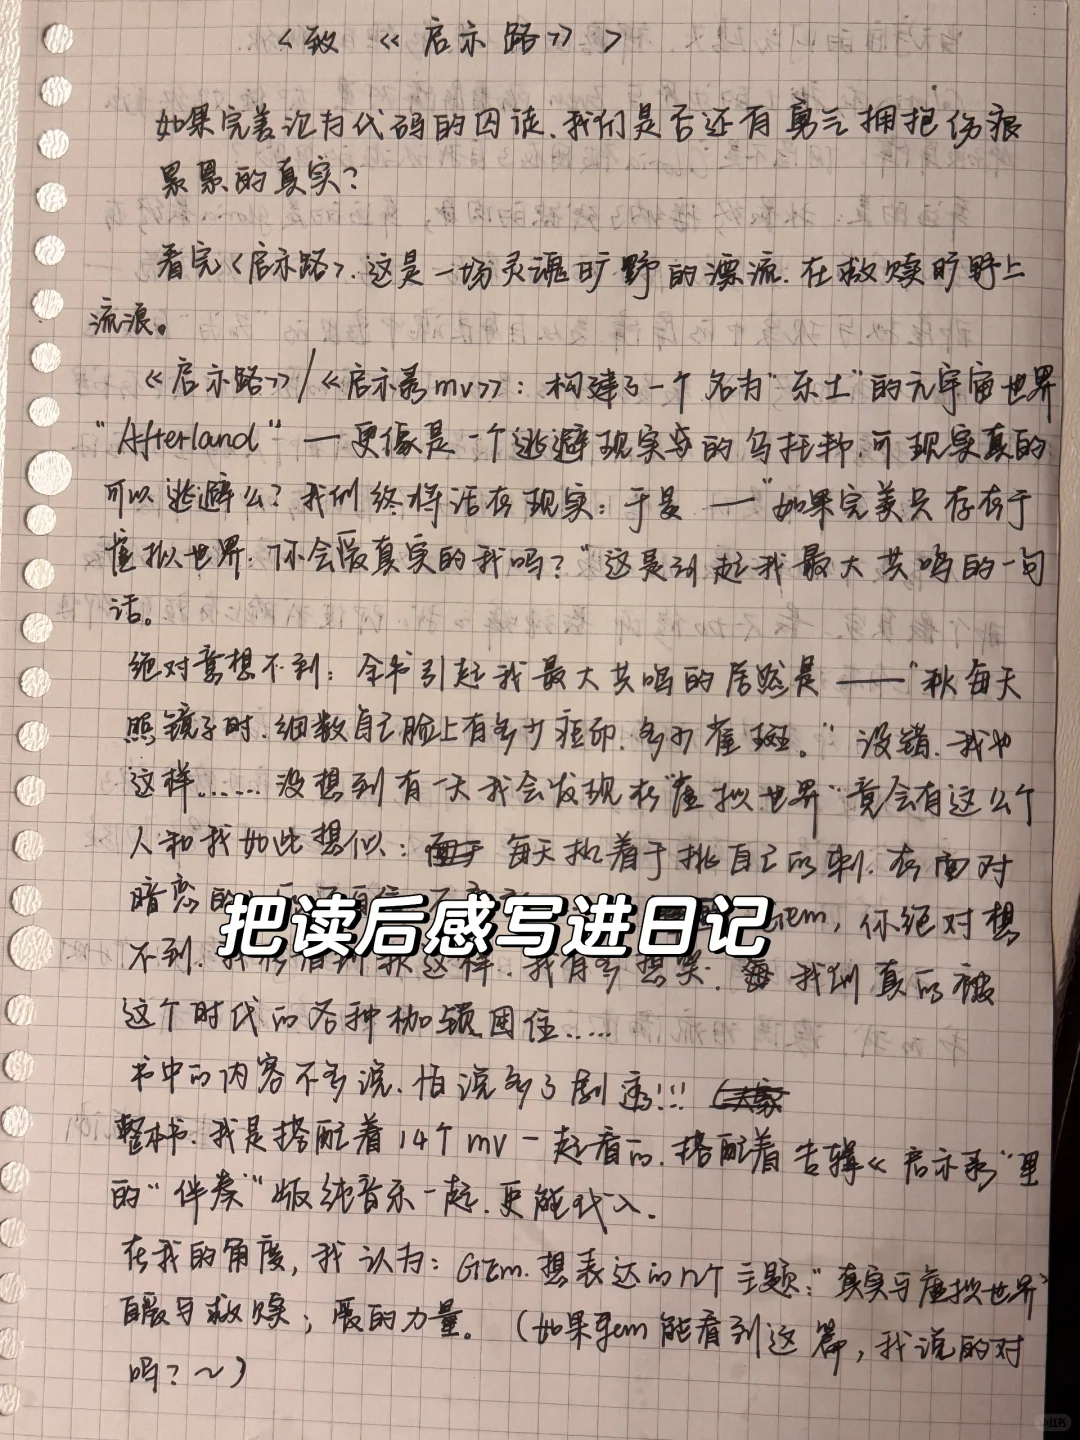 <致《启示路》>
如果完美沦为代码的囚徒.我们是否还有勇气拥抱伤痕
累累的真实?
看完<启示路>.这是一场灵魂旷野的漂流.在救赎旷野上
流浪。
《启示路》/《启示录mv》:构建了一个名为"乐土"的元宇宙世界
"Afterland"—更像是一个逃避现实的乌托邦.可现实真的
可以逃避么?我们终将活在现实:于是—"如果完美只存在于
虚拟世界.你会爱真实的我吗?"这是引起我最大共鸣的一句
话。
绝对意想不到:全书引起我最大共鸣的居然是——"秋每天
照镜子时.细数自己脸上有多少痘印.多少雀斑。"没错.我也
这样……没想到有一天我会发现在"虚拟世界"竟会有这么个
人和我如此想似:每天执着于挑自己的刺.在面对
暗恋的
把读后感写进日记
Gem,你绝对想
不到.我有多想哭.我们真的被
这个时代的各种枷锁困住……
书中的内容不多说.怕说多了剧透!!!
整本书.我是搭配着14个mv一起看的.搭配着专辑《启示录"里
的"伴奏"版纯音乐一起.更能代入.
在我的角度,我认为:GEm.想表达的几个主题:"真实与虚拟世界"
自爱与救赎;爱的力量。(如果gem能看到这篇,我说的对
吗?~)
小红书